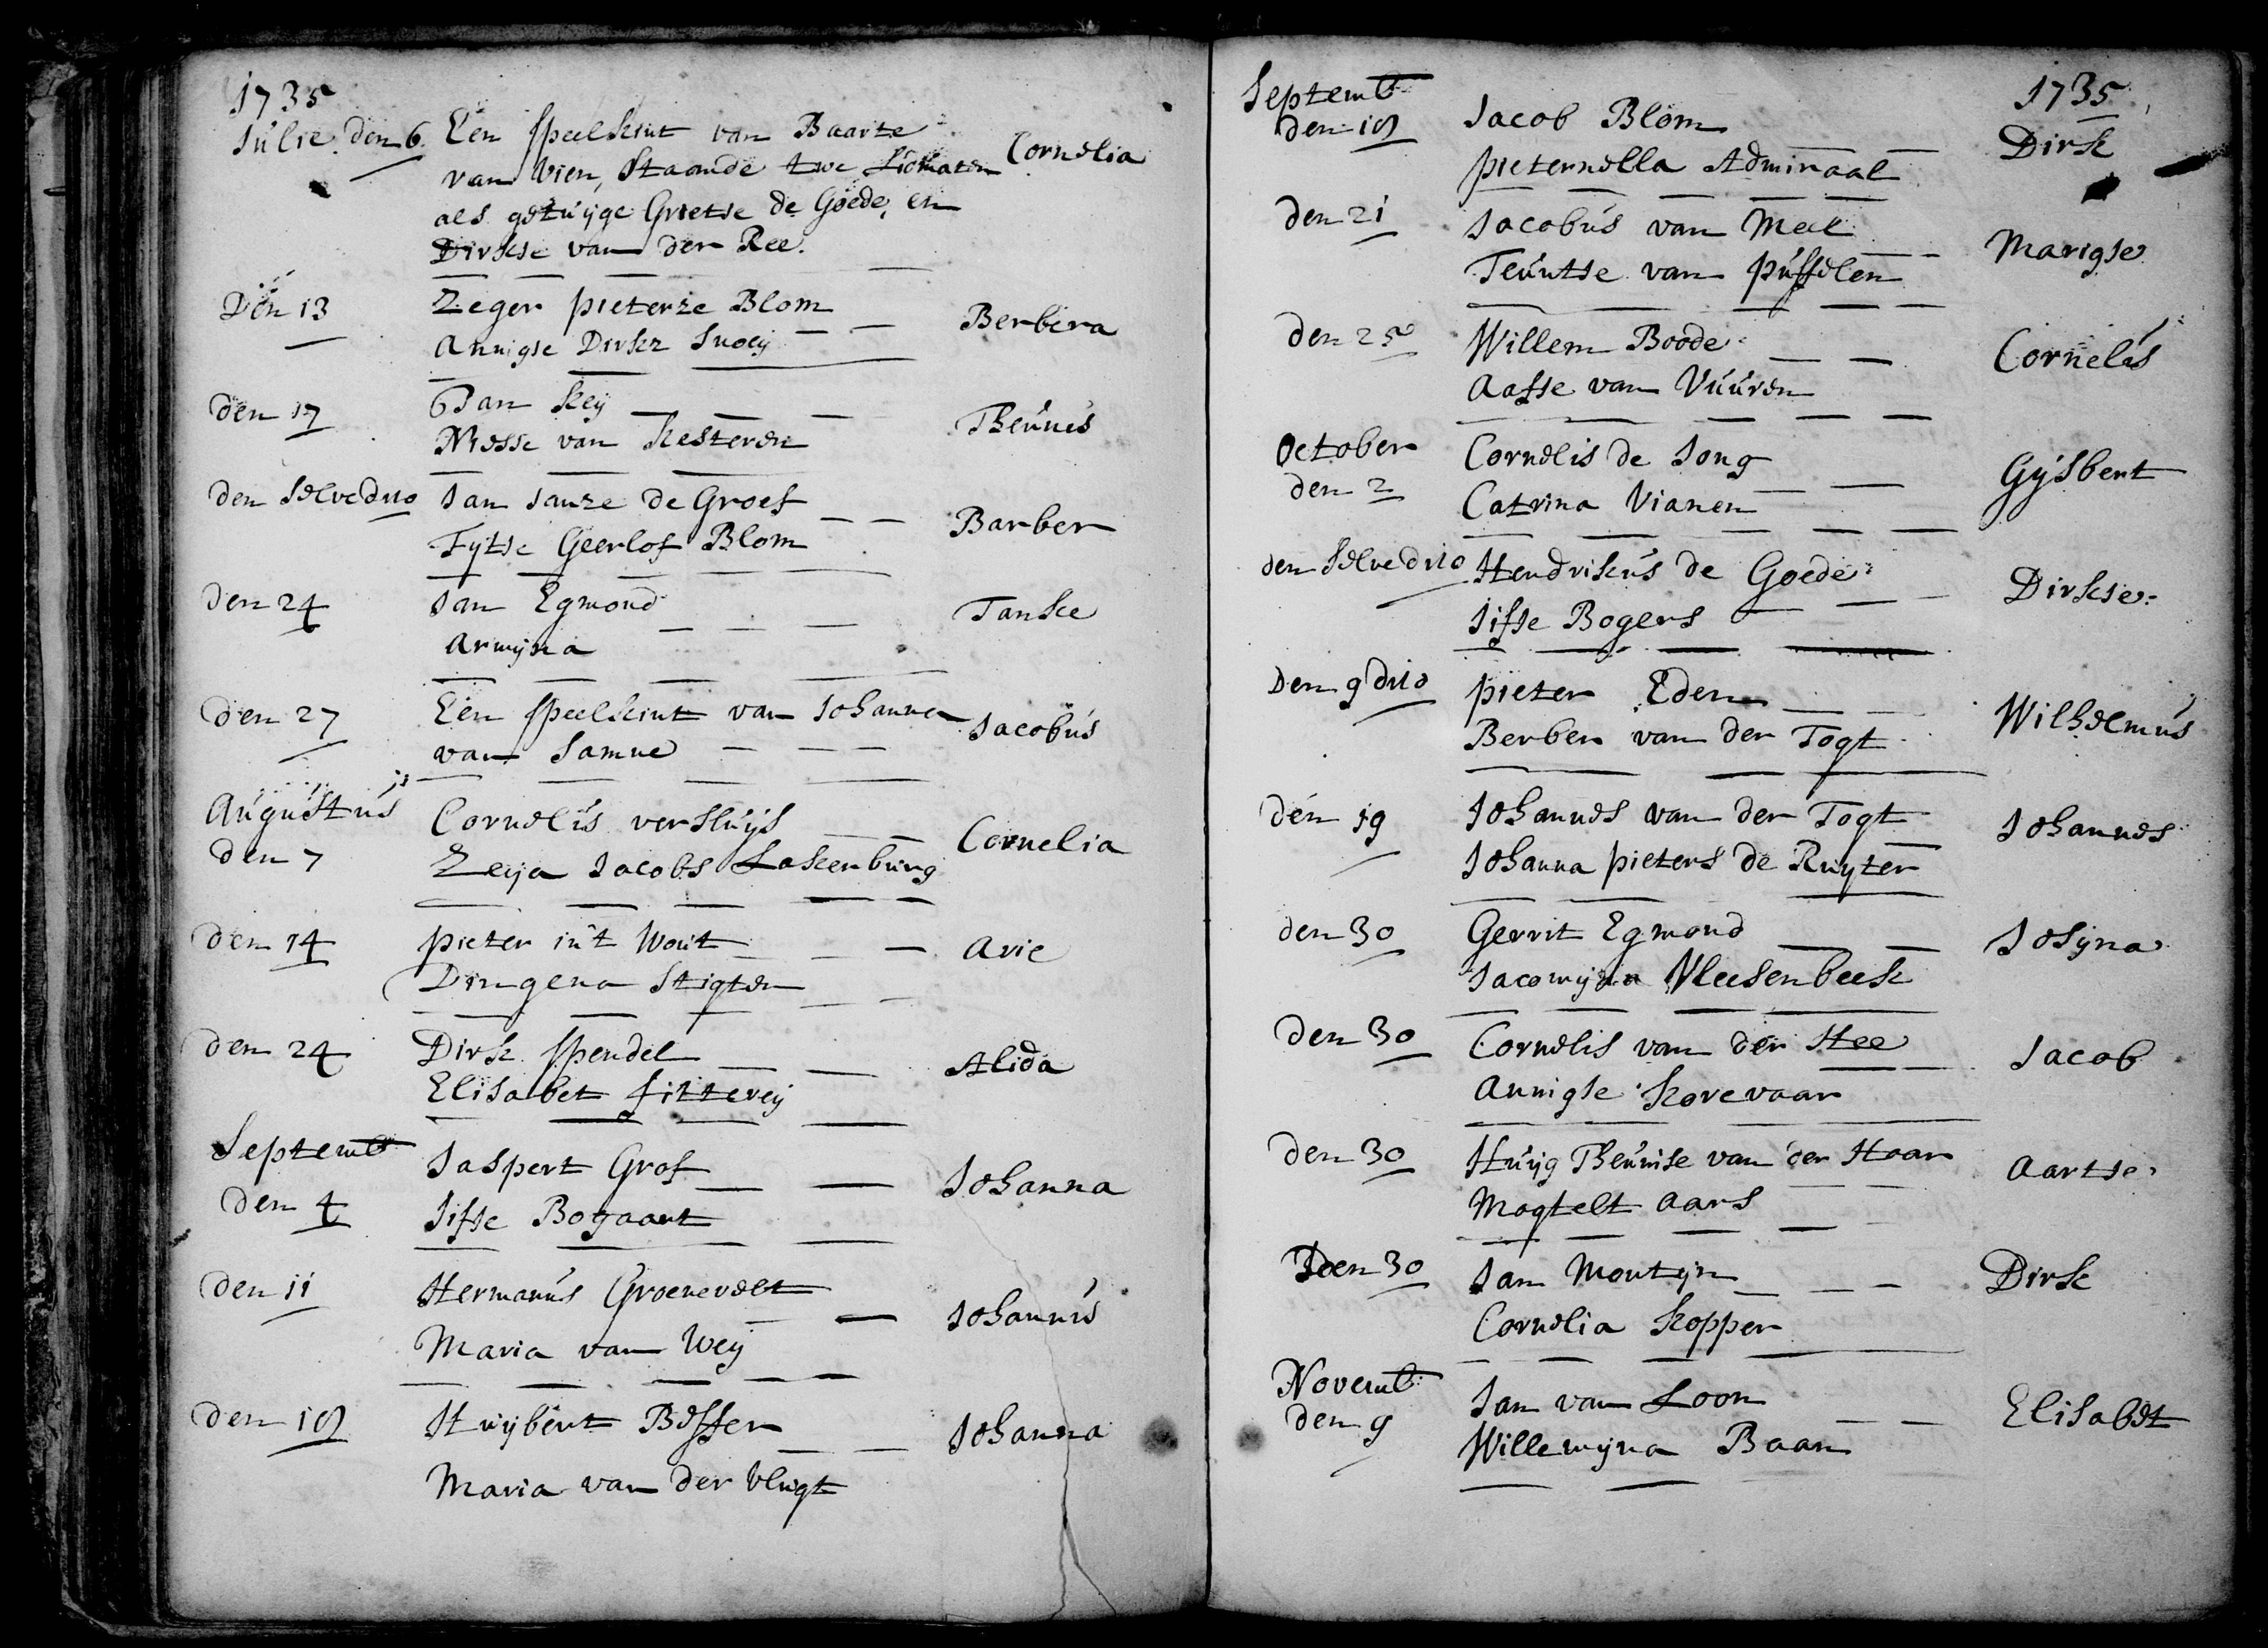 1735
Julie den 6. Een speelkint van Baarte Cornelia
van Vien, staande twe Lidmaten
als getuijge Grietse de Goede, en
Dirkse van der Ree.
Den 13 Zeger pieterze Blom Berbera
Annigse Dirkz Snoeij
den 17 Ban Keij Theunis
Messe van Kesteren
den selve dito Jan Janze de Groef Barber
Fytse Geerlof Blom
den 24 Jan Egmond Tanke
Armijna
den 27 Een speelkint van Johanna Jacobus
van Samue
Augustus Cornelis versluijs Cornelia
den 7 Zeija Jacobs Lakenburg
den 14 pieter in't Wout Arie
Dingena Stigter
den 24 Dirk spendel Alida
Elisabet fitterij
Septemb Jaspert Grof Johanna
den 4 Jifse Bogaart
den 11 Hermanus Groenevelt Johannis
Maria van Weij
den 18 Huijbert Besser Johanna
Maria van der Vlugt
Septemb 1735
den 18 Jacob Blom Dirk
pieternella Admiraal
den 21 Jacobus van Meel Marigse
Teuntse van puffelen
den 25 Willem Boode Cornelis
Aafse van Vuuren
October Cornelis de Jong Gijsbert
den 2 Catrina Vianen
den selve dito Hendrikus de Goede Dirkse
Jifse Bogers
Den 9 dito pieter Eden Wilhelmus
Berber van der Togt
den 19 Johannes van der Togt Johannes
Johanna pieters de Ruyter
den 30 Gerrit Egmond Josyna
Jacomyna Vleesenbeek
den 30 Cornelis van der Hee Jacob
Annigse Korevaar
den 30 Huijg Theunise van der Haar Aartse
Magtelt Aars
Den 30 Jan Montyn Dirk
Cornelia Kopper
Novemb Jan van Loon Elisabet
den 9 Willemyna Baan